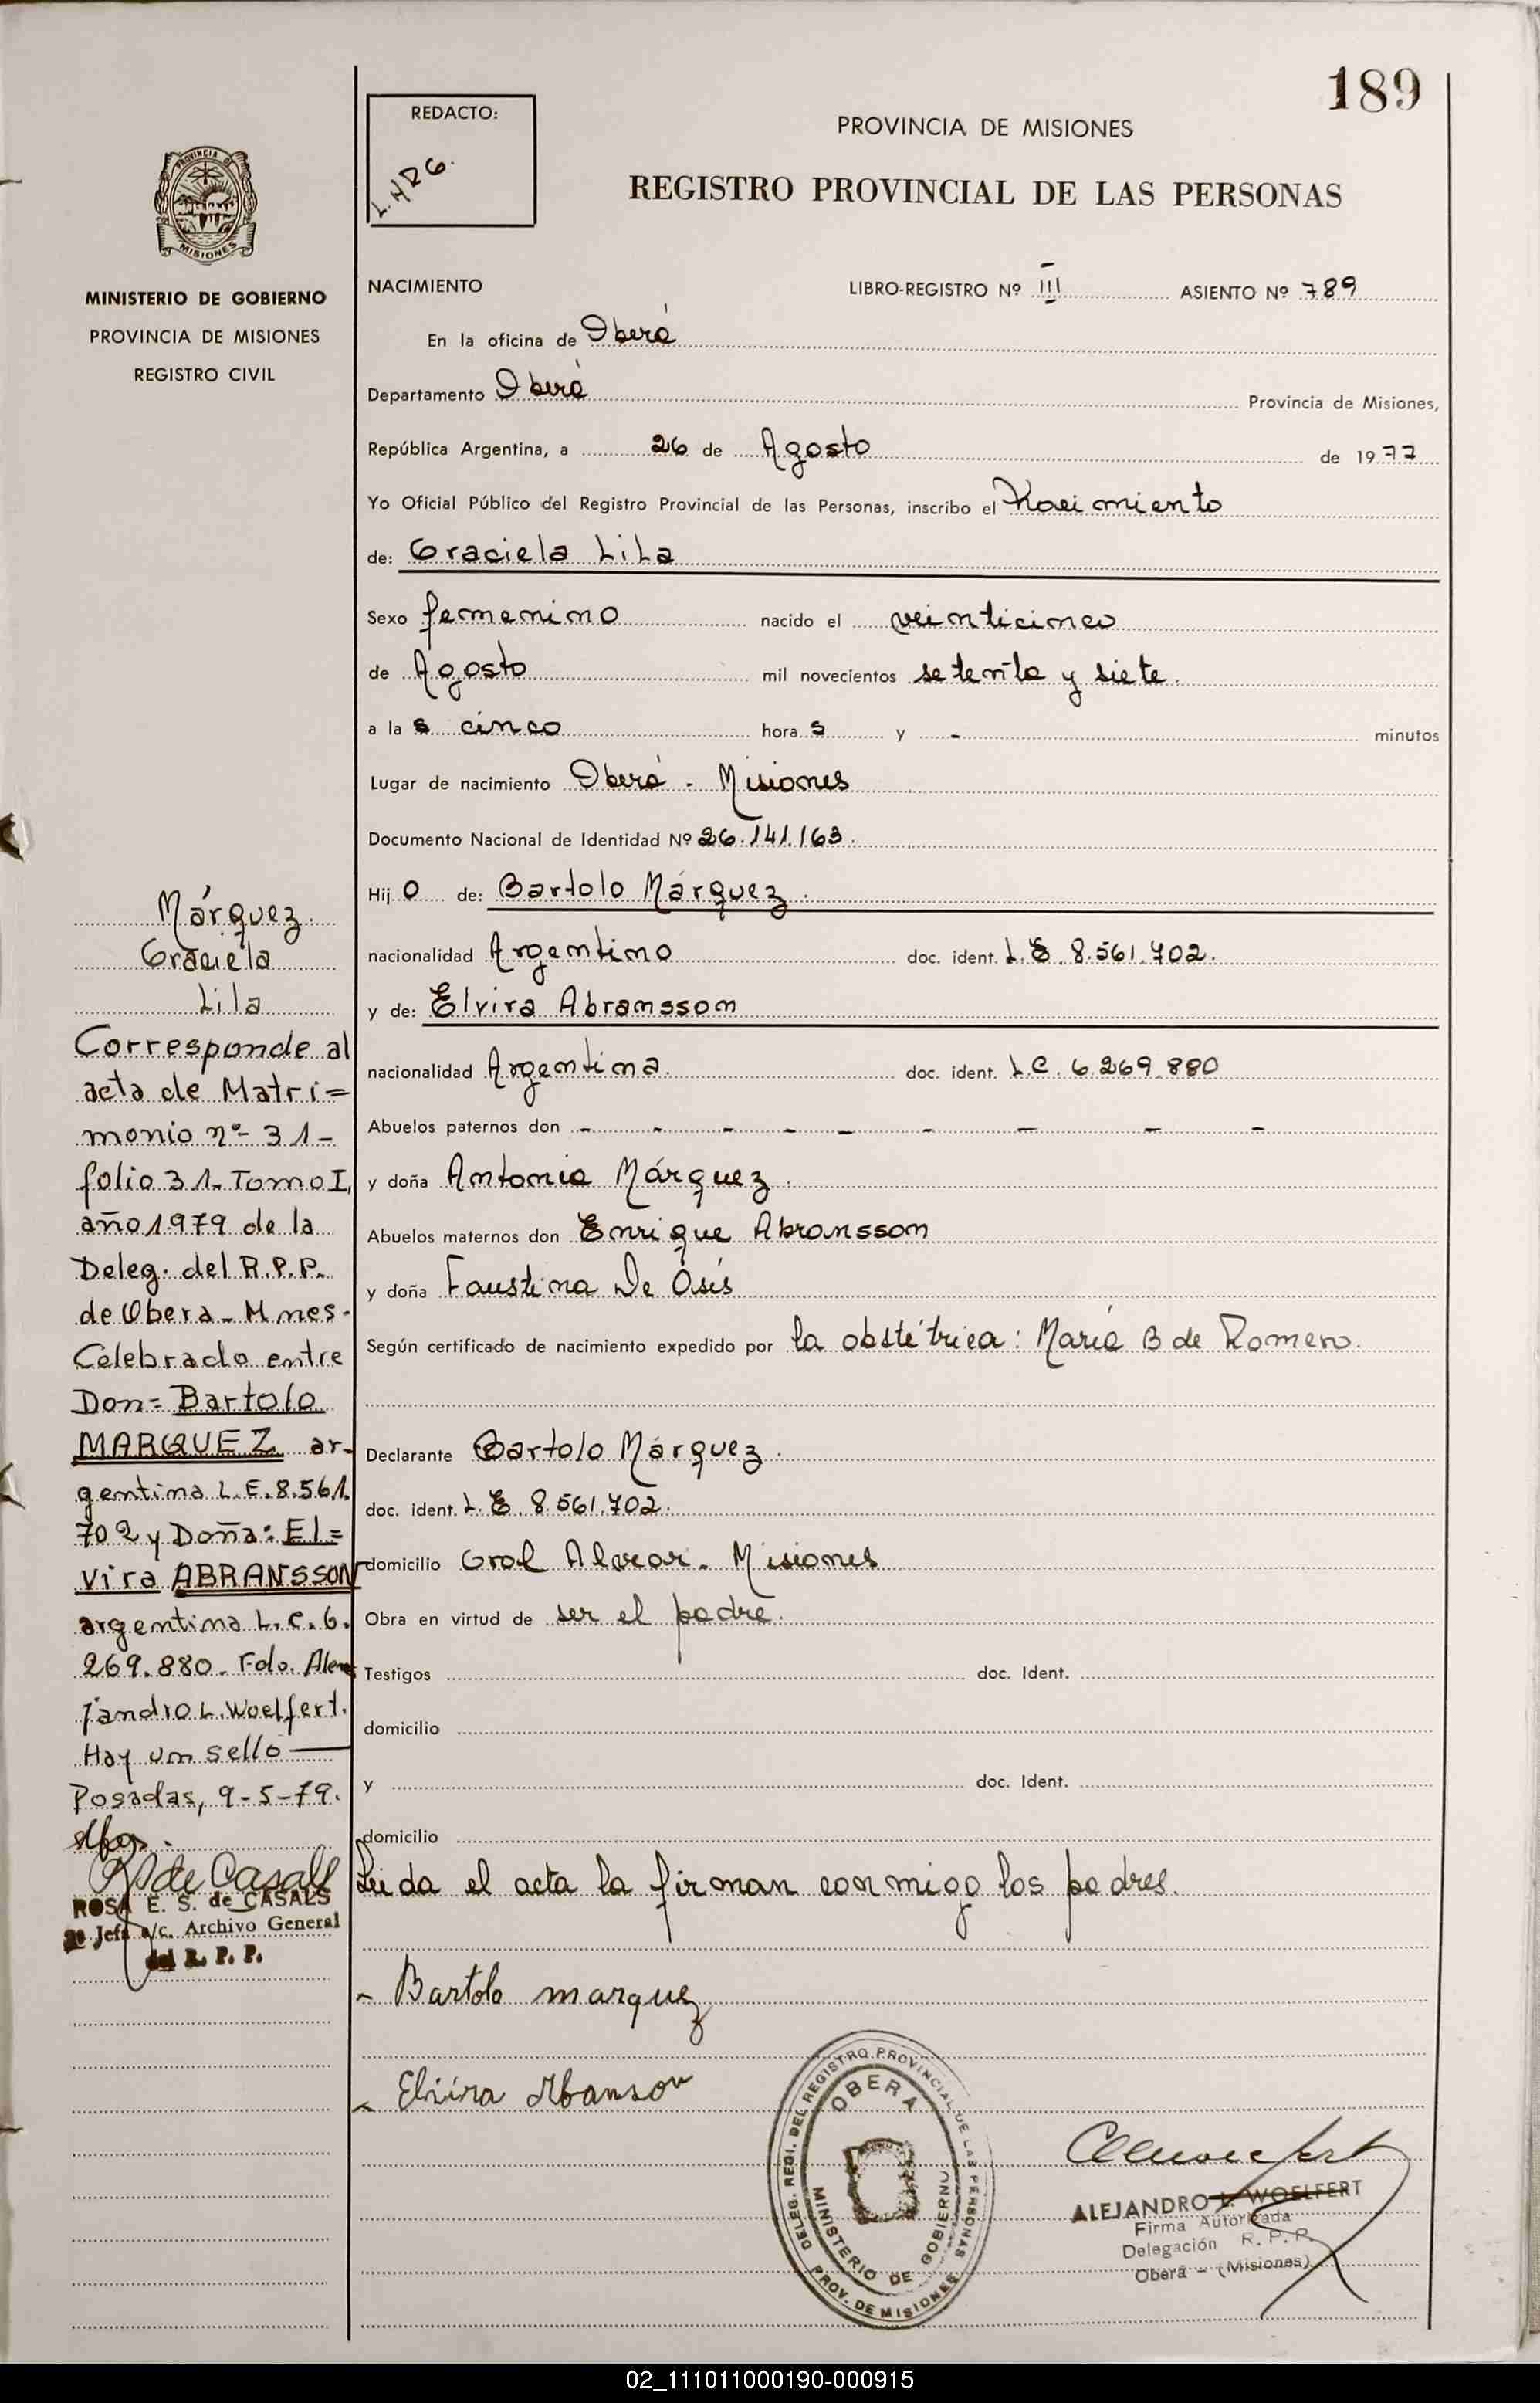 189
REDACTO:
L.HRG.
PROVINCIA DE MISIONES
REGISTRO PROVINCIAL DE LAS PERSONAS
PROVINCIA D MISIONES
MINISTERIO DE GOBIERNO
PROVINCIA DE MISIONES
REGISTRO CIVIL
NACIMIENTO LIBRO-REGISTRO Nº III ASIENTO Nº 789
En la oficina de Oberá
Departamento Oberá Provincia de Misiones,
República Argentina, a 26 de Agosto de 1977
Yo Oficial Público del Registro Provincial de las Personas, inscribo el Nacimiento
de: Graciela Lila
Sexo femenino nacido el veinticinco
de Agosto mil novecientos setenta y siete.
a la s cinco hora s y - minutos
Lugar de nacimiento Oberá - Misiones
Documento Nacional de Identidad Nº 26.141.163.
Hij O de: Bartolo Márquez.
nacionalidad Argentino doc. ident. L.E. 8.561.702.
y de: Elvira Abransson
nacionalidad Argentina. doc. ident. L.C. 6.269.880
Abuelos paternos don - - - - - - - -
y doña Antonia Márquez.
Abuelos maternos don Enrique Abransson
y doña Faustina De Asís
Según certificado de nacimiento expedido por la obstétrica: María B de Romero.
Declarante Bartolo Márquez.
doc. ident. L.E. 8.561.702.
domicilio Gral Alvear - Misiones
Obra en virtud de ser el padre.
Testigos doc. Ident.
domicilio
y doc. Ident.
domicilio
Leida el acta la firman conmigo los padres.
Bartolo marquez
Elvira Abanson
DELEG. REGI. DEL REGISTRO PROVINCIAL DE LAS PERSONAS
OBERA
MINISTERIO DE GOBIERNO
PROV. DE MISIONES
ALEJANDRO L. WOELFERT
Firma Autorizada
Delegación R. P. P.
Oberá - (Misiones)
Márquez.
Graciela
Lila
Corresponde al
acta de Matri=
monio nº- 31-
folio 31- Tomo I,
año 1979 de la
Deleg. del R.P.P.
de Obera - Mnes-
Celebrado entre
Don= Bartolo
MARQUEZ ar-
gentina L.E. 8.561.
702 y Doña: El=
vira ABRANSSON
argentina L.C. 6.
269.880. Fdo. Ale
jandro L. Woelfert.
Hay un sello
Posadas, 9-5-79.
R S de Casals
ROSA E. S. de CASALS
2ª Jefa a/c. Archivo General
del R. P. P.
02_111011000190-000915